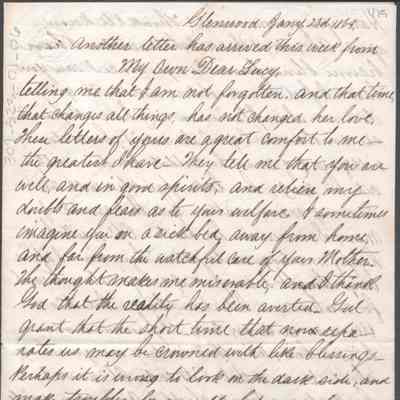 Glenwood, Jany 23d 186
Another letter has arrived this week from
My Own Dear Lucy,
telling me that I am not forgotten, and that time,
that changes all things, has not changed her love.
These letters of yours are a great comfort to me—
the greatest I have— They tell me that you are
well, and in good spirits, and relieve my
doubts and fears as to your welfare. I sometimes
imagine you on a sick bed, away from home,
and far from the watchful care of your Mother.
The thought makes me miserable, and I thank
God that the reality has been averted. God
grant that the short time that now sepa
rates us may be crowned with like blessings—
Perhaps it is wrong to look on the dark side, and
make